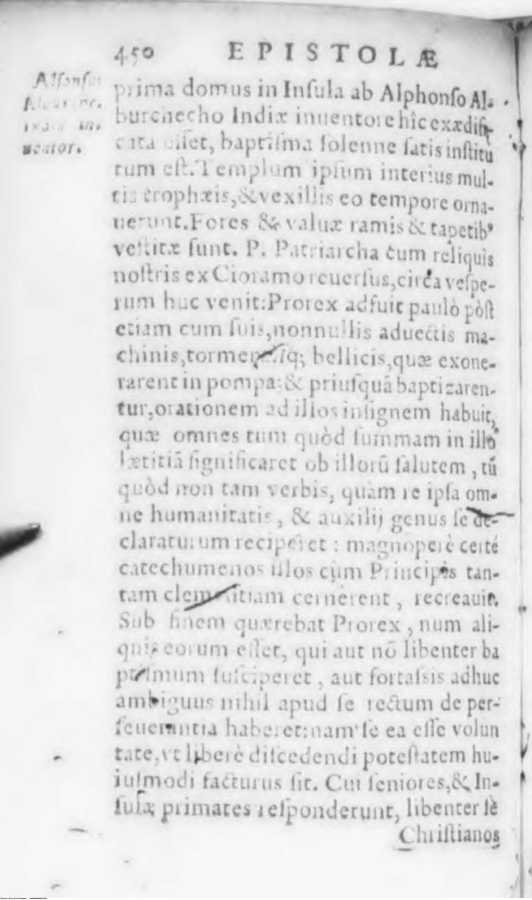 450 EPISTOLÆ
Alfonsus
in-
uentor.
prima domus in Insula ab Alphonso Al-
burchecho Indiæ inuentore hîc exædifi-
cata esset, baptisma solenne satis institu
tum est. Templum ipsum interius mul-
tis trophæis, & vexillis eo tempore orna-
uerunt. Fores & valuæ ramis & tapetibꝰ
vestitæ sunt. P. Patriarcha cum reliquis
nostris ex Cioramo reuersus, circa vespe-
rum huc venit: Prorex adfuit paulò pòst
etiam cum suis, nonnullis aduectis ma-
chinis, tormentisq; bellicis, quæ exone-
rarent in pompa: & priusquā baptizaren-
tur, orationem ad illos insignem habuit,
quæ omnes tum quòd summam in illo
lætitiā significaret ob illorū salutem, tū
quòd non tam verbis, quàm re ipsa om-
ne humanitatis, & auxilij genus se de-
claraturum reciperet: magnoperè certè
catechumenos illos cùm Principis tan-
tam clementiam cernerent, recreauit.
Sub finem quærebat Prorex, num ali-
quis eorum esset, qui aut nō libenter ba
ptismum susciperet, aut fortassis adhuc
ambiguus nihil apud se rectum de per-
seuerantia haberet: nam se ea esse volun
tate, vt liberè discedendi potestatem hu-
iusmodi facturus sit. Cui seniores, & In-
sulæ primates responderunt, libenter sè
Christianos